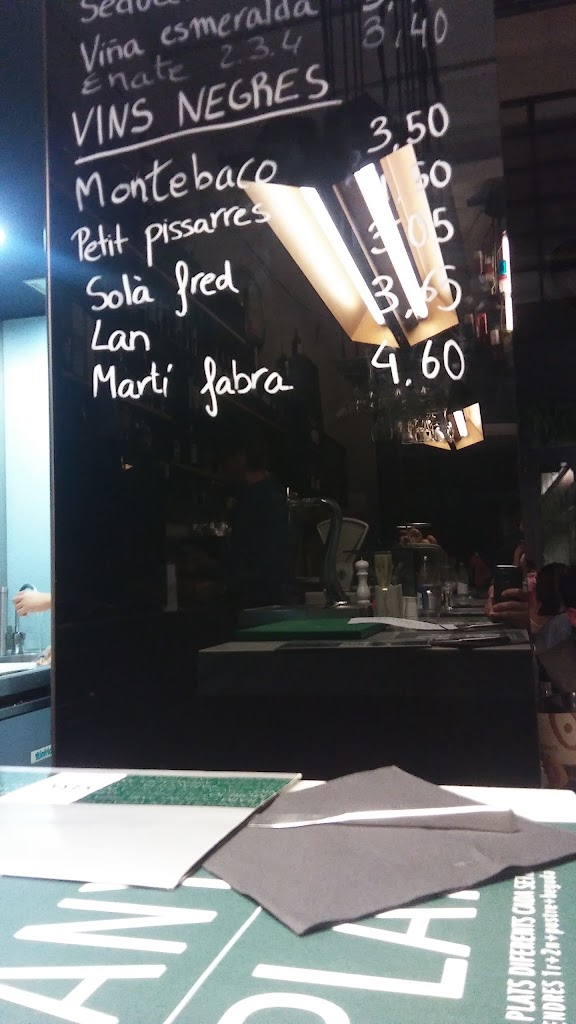 Viña esmeralda 3,40
Enate 2.3.4
VINS NEGRES
Montebaco 3,50
Petit pissarres
Solà fred 3,05
Lan 3,65
Martí fabra 4.60
PLATS DIFERENTS CADA
1r+2n+postre+beguda